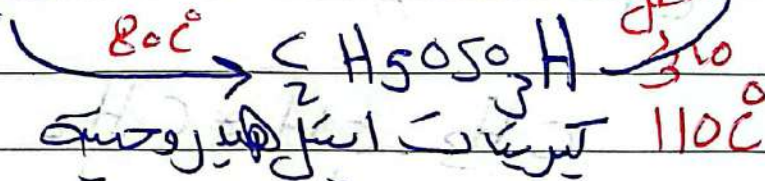 80C° C2H5OSO3H
كبريتات ايثيل هيدروجينية 110C°